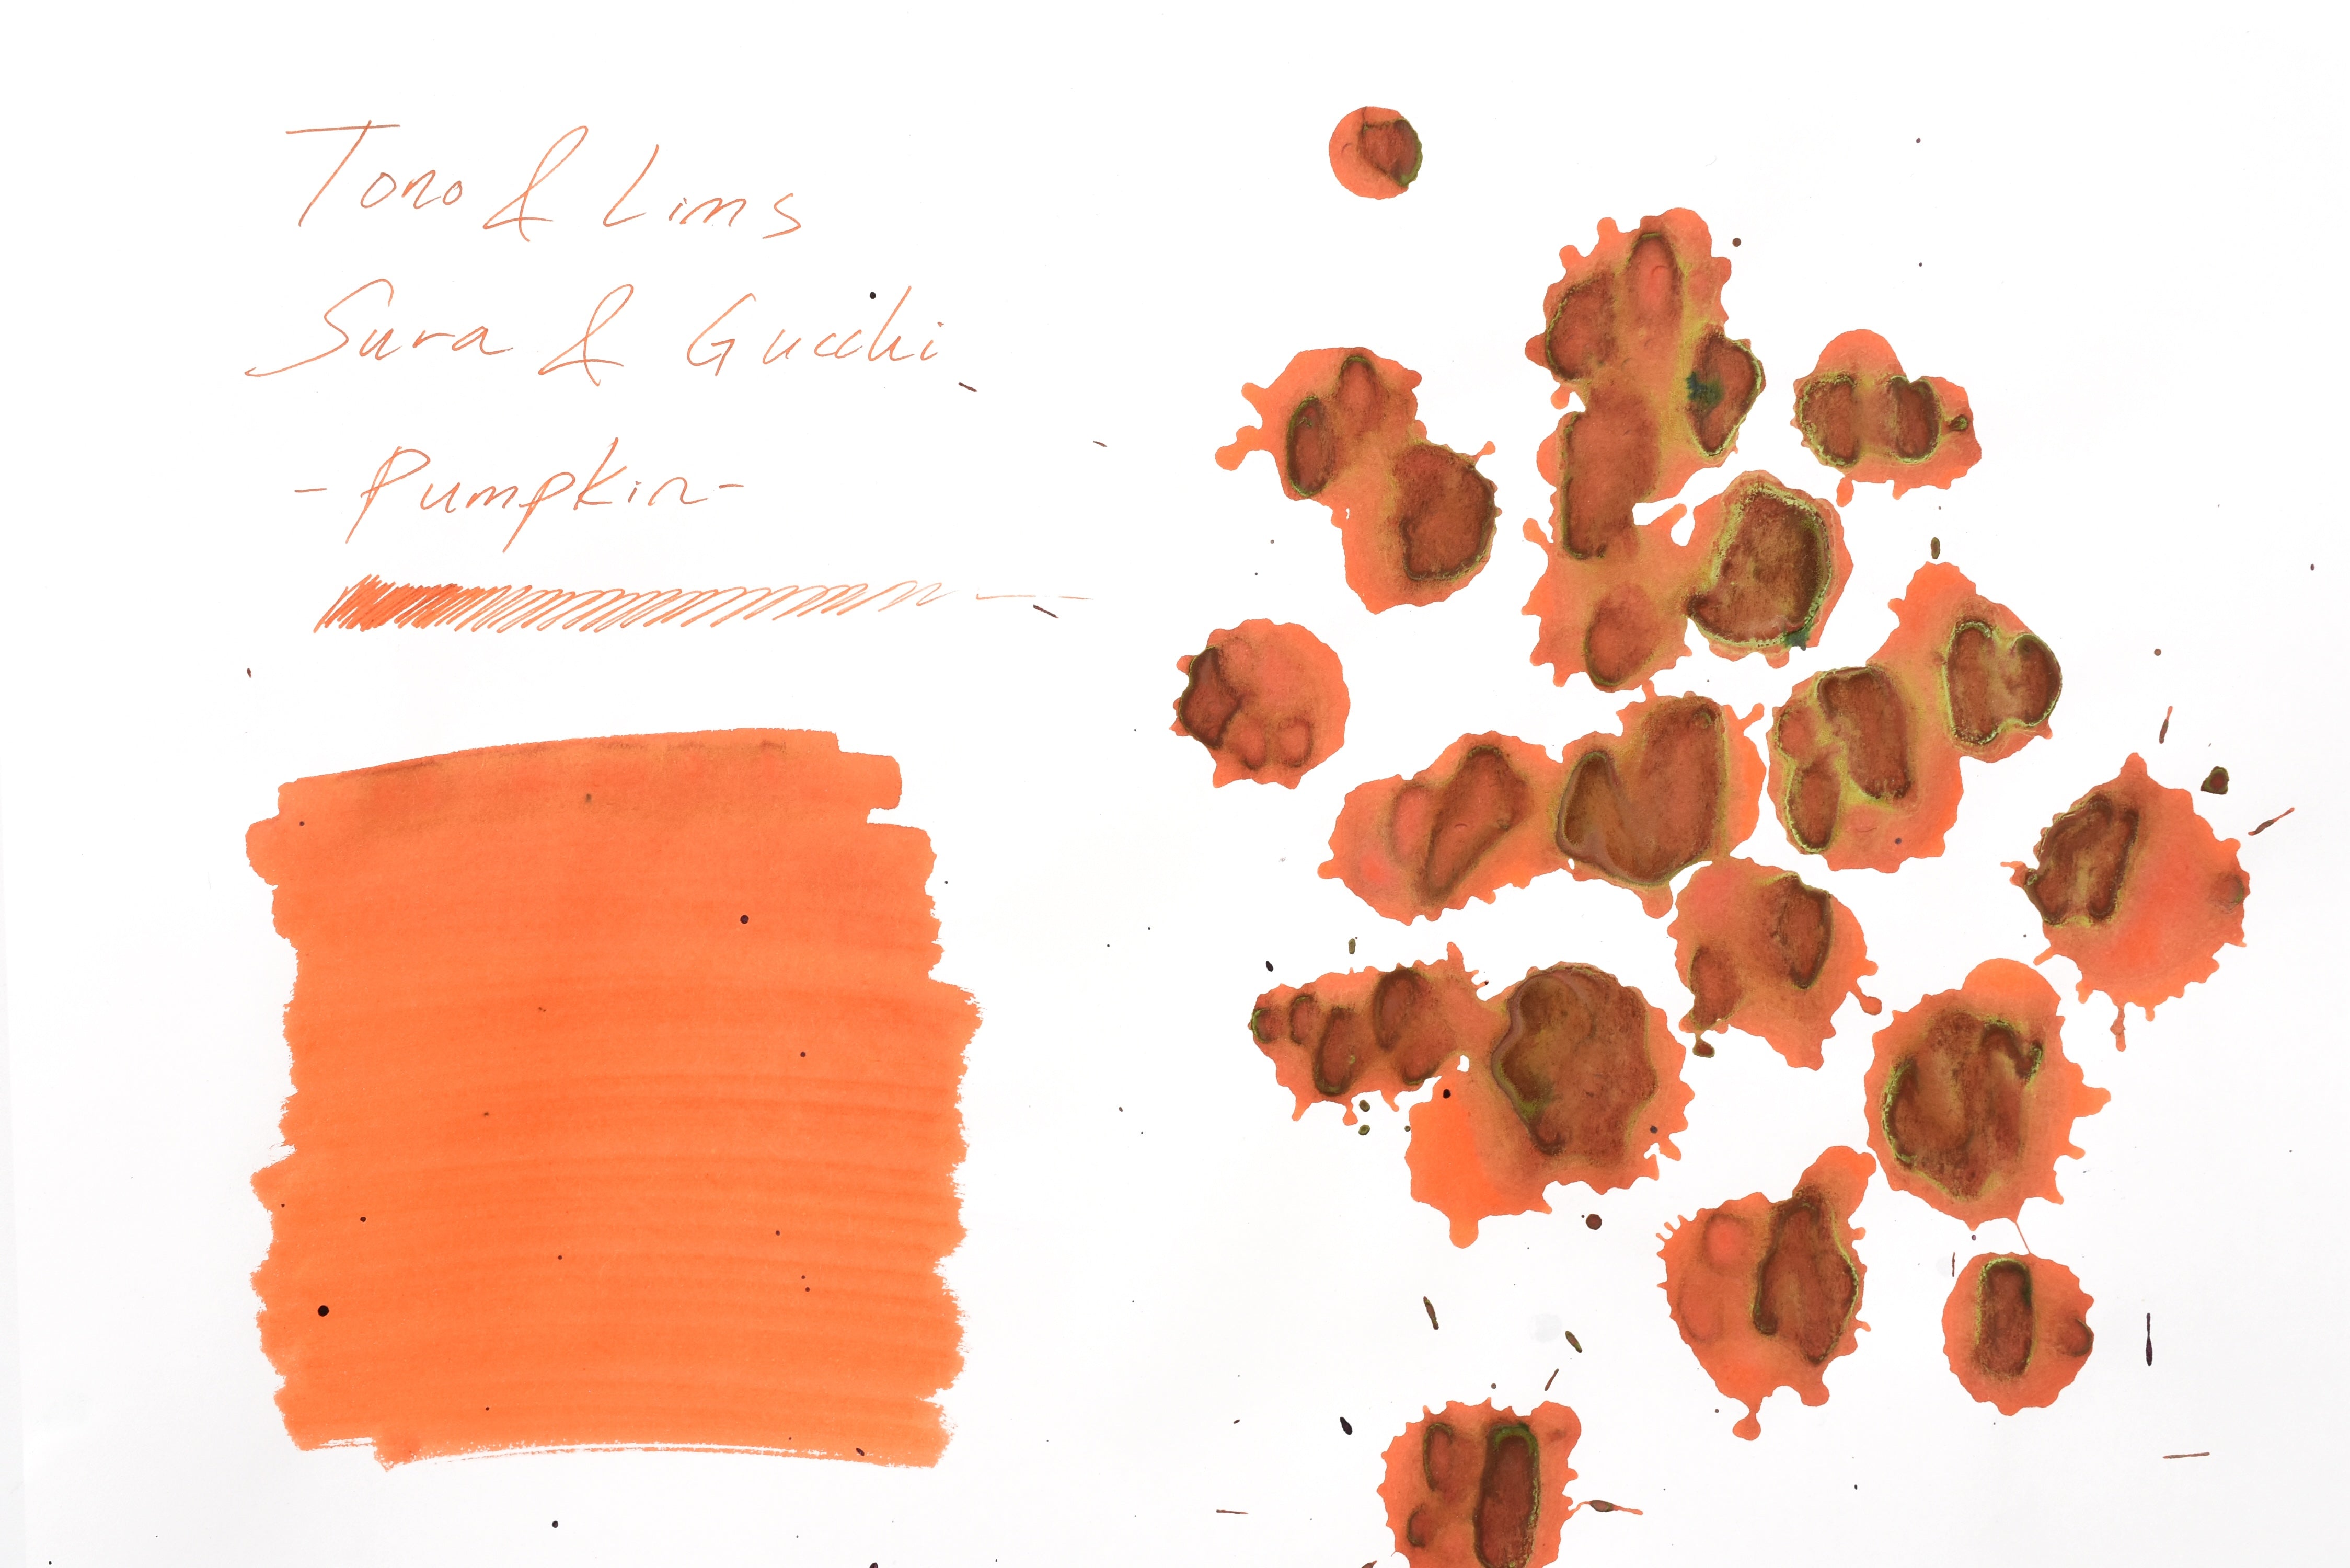 Tono & Lims
Sura & Gucchi
- Pumpkin -